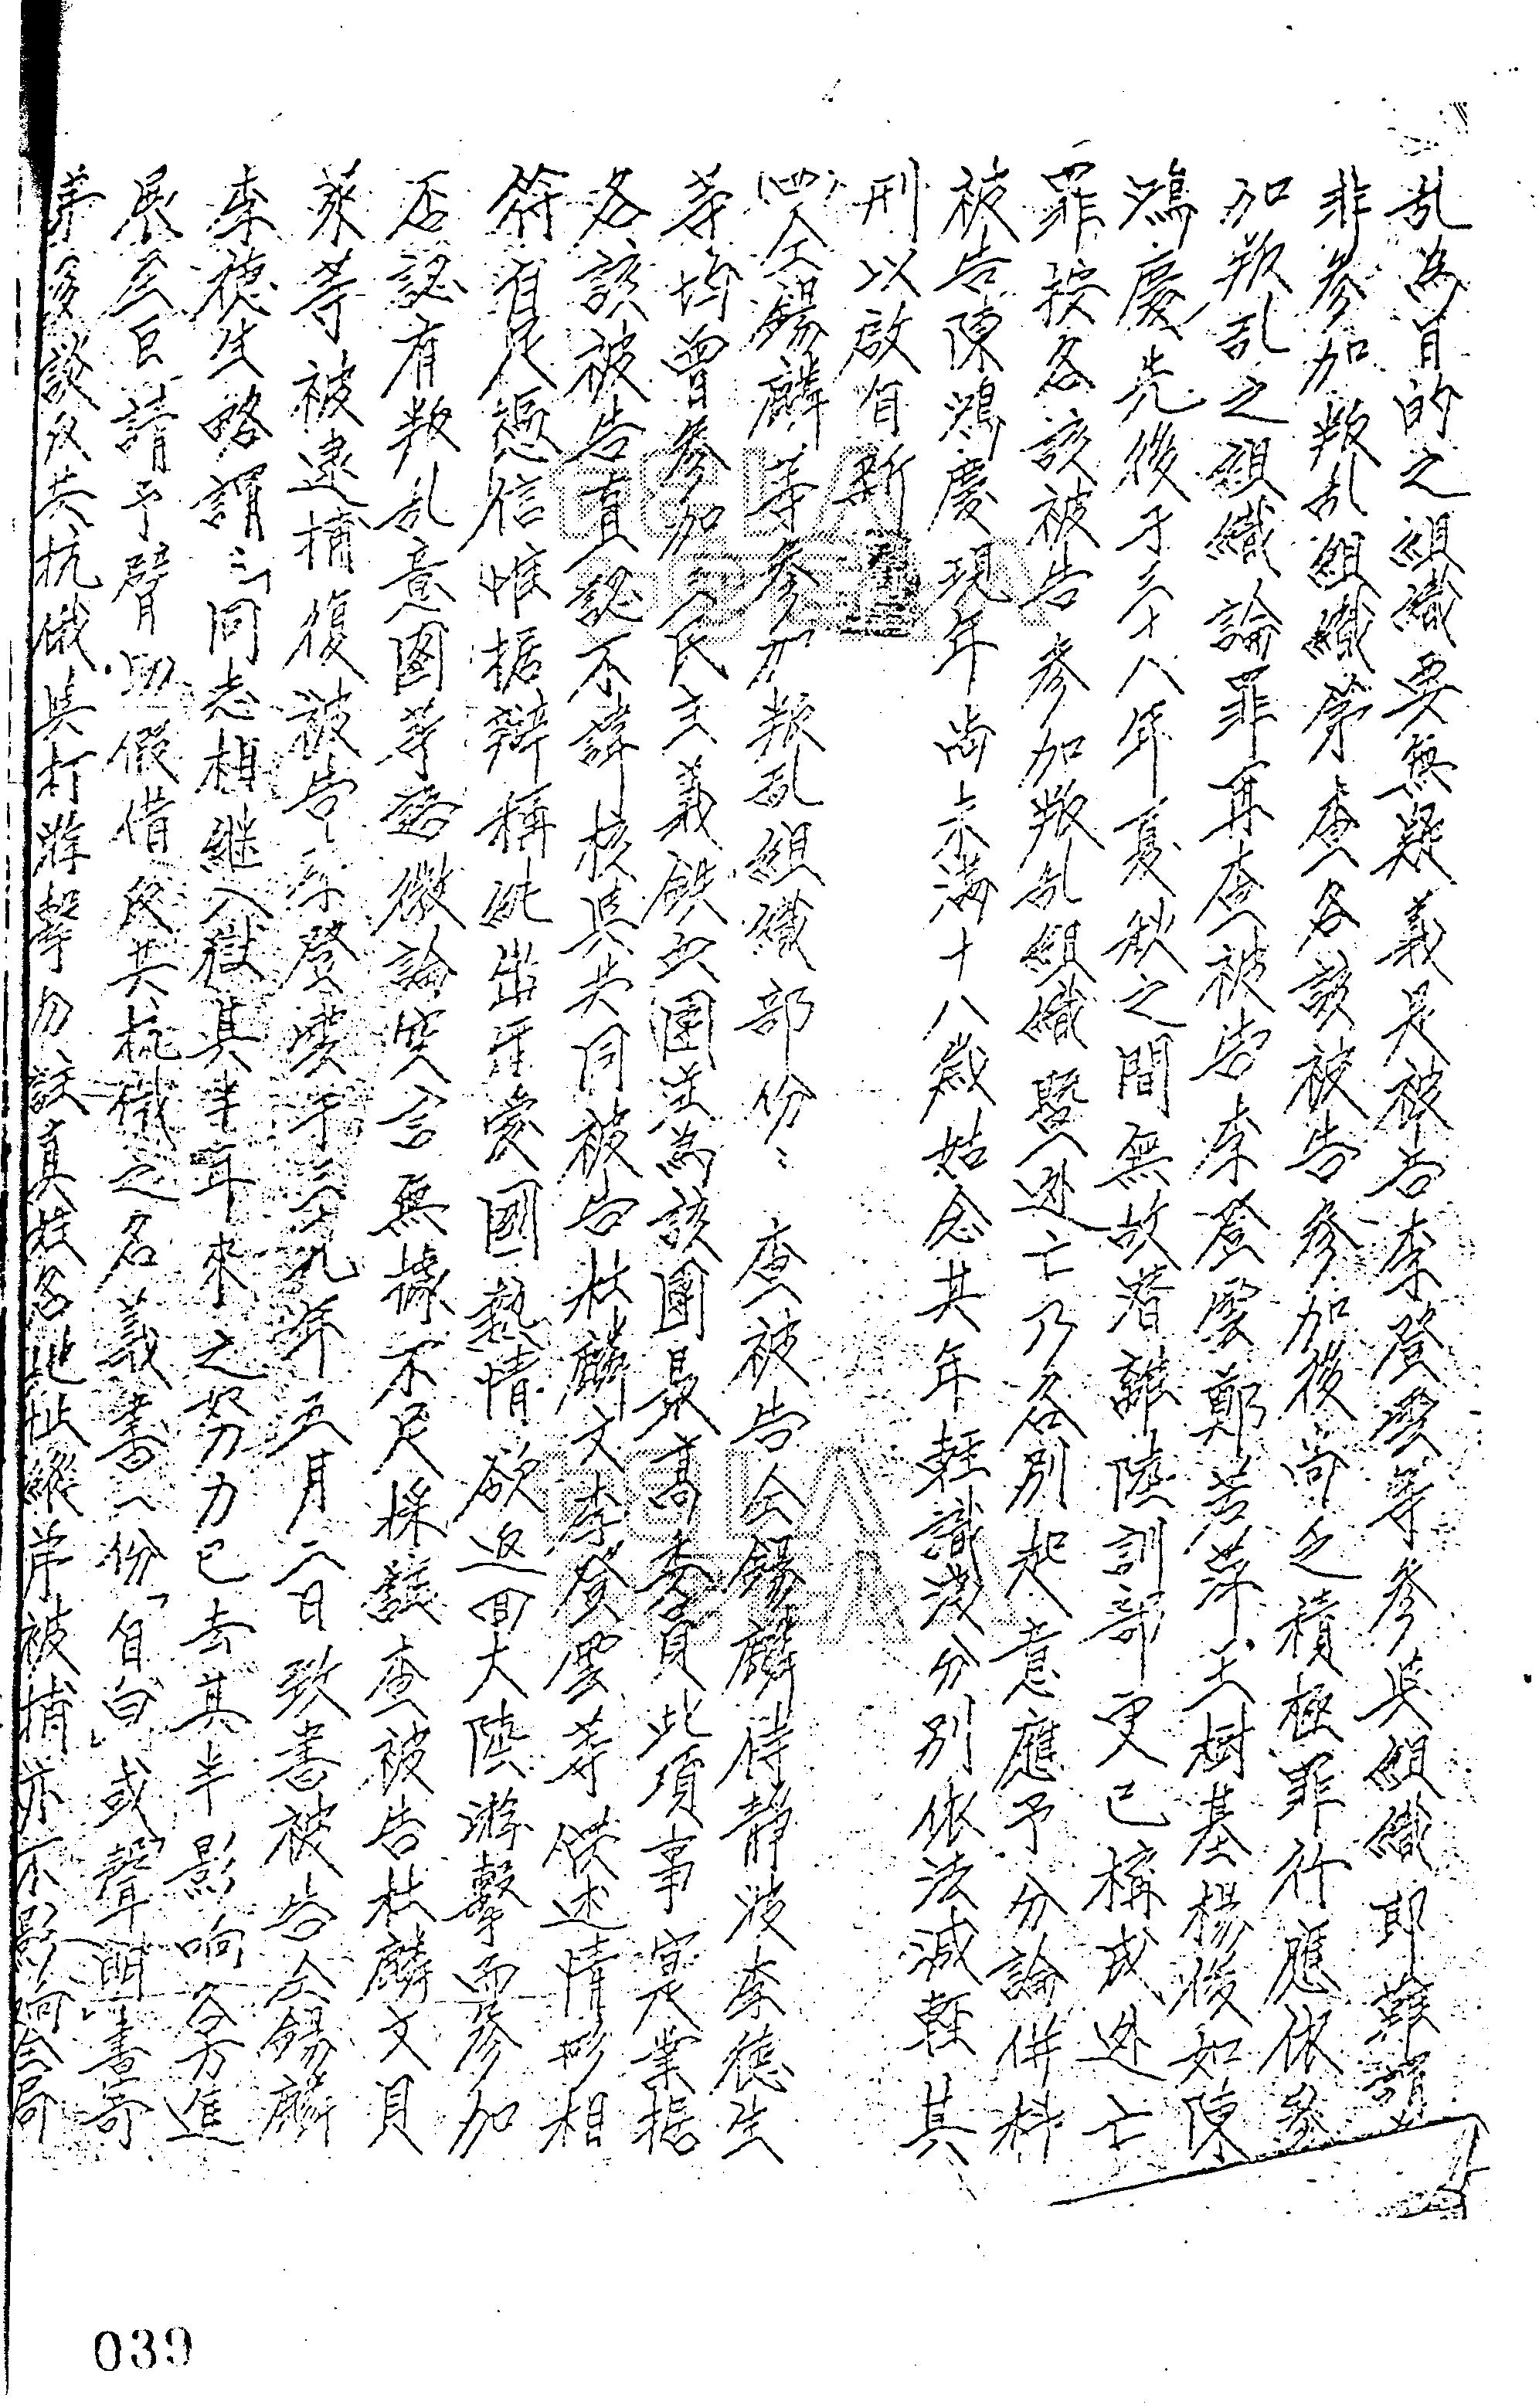 乱為目的之組織要無疑義是被告李登雲等參與組織即難謂
非參加叛乱組織第查各該被告參加後尚乏積極罪行應依參
加叛乱之組織論罪再查被告李登雲鄭若萍王樹基楊俊如陳
鴻慶先後于三十八年夏秋之間無故潛離陸訓部更已構成逃亡
罪按各該被告參加叛乱組織暨逃亡乃各別起意應予分論併科
被告陳鴻慶現年尚未滿十八歲姑念其年輕識淺分別依法減輕其
刑以啟自新
四仝錫麟等參加叛乱組織部份：查被告仝錫麟侍靜波李德生
等均曾參加三民主義鉄血團並為該團最高委員此項事寔業据
各該被告直認不諱核與共同被告杜麟文李登雲等供述情形相
符自足憑信惟据辯稱此出乎愛國熱情欲返回大陸游擊而參加
否認有叛乱意圖等語徵論空言無據不足採證查被告杜麟文貝
萊等被逮捕復被告李登雲于三九年五月二日致書被告仝錫麟
李德生略謂：「同志相繼入獄其半年來之努力已去其半影响今后進
展至巨請予臂助假借反共抗俄之名義書一份「自白」或「聲明書」寄
弟多談反共抗俄與打游擊勿註真姓名地址縱弟被捕亦不影响全局
039